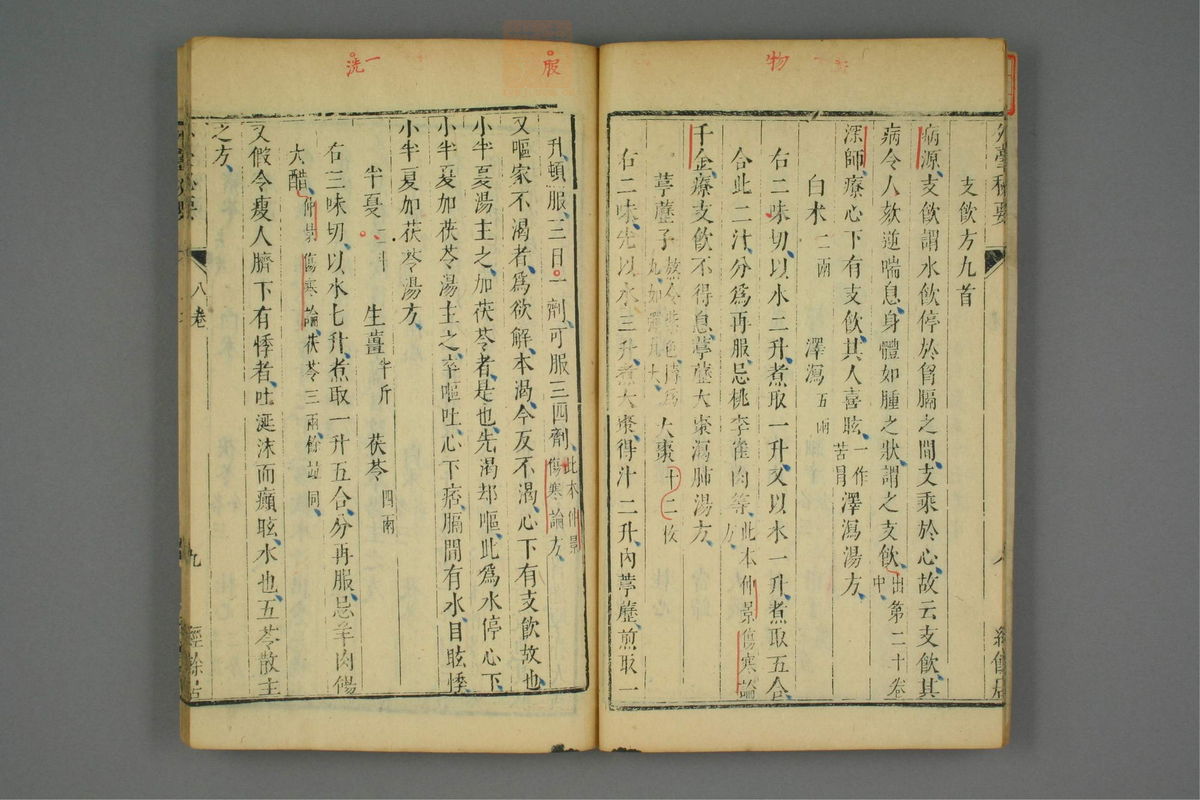 物
支飲方九首
病源支飲謂水飲停於胷膈之間支乘於心故云支飲其
病令人欬逆喘息身體如腫之狀謂之支飲出第二十卷中
深師療心下有支飲其人喜眩一作苦冒澤瀉湯方
白术二兩 澤瀉五兩
右二味切以水二升煮取一升又以水一升煮取五合
合此二汁分為再服忌桃李雀肉等此本仲景傷寒論方
千金療支飲不得息葶藶大棗瀉肺湯方
葶藶子熬令紫色擣為丸如彈丸大 大棗十二枚
右二味先以水三升煮大棗得汁二升內葶藶煎取一
服
一洗
升頓服三日一劑可服三四劑此本仲景傷寒論方
又嘔家不渴者為欲解本渴今反不渴心下有支飲故也
小半夏湯主之加茯苓者是也先渴却嘔此為水停心下
小半夏加茯苓湯主之卒嘔吐心下痞膈間有水目眩悸
小半夏加茯苓湯方
半夏 生薑半斤 茯苓四兩
右三味切以水七升煮取一升五合分再服忌羊肉餳
大醋仲景傷寒論茯苓三兩餘並同
又假令瘦人臍下有悸者吐涎沫而癲眩水也五苓散主
之方
八卷
九
經餘居